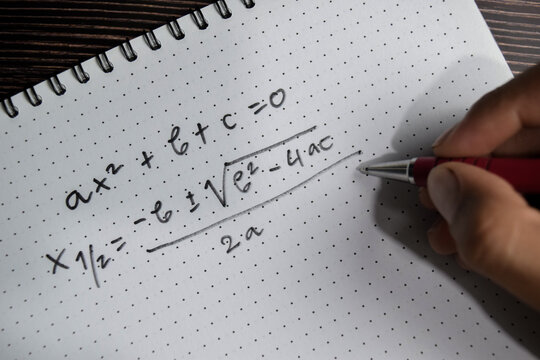 ax² + b + c = 0
x 1/2 = -b ± √b² - 4ac / 2a